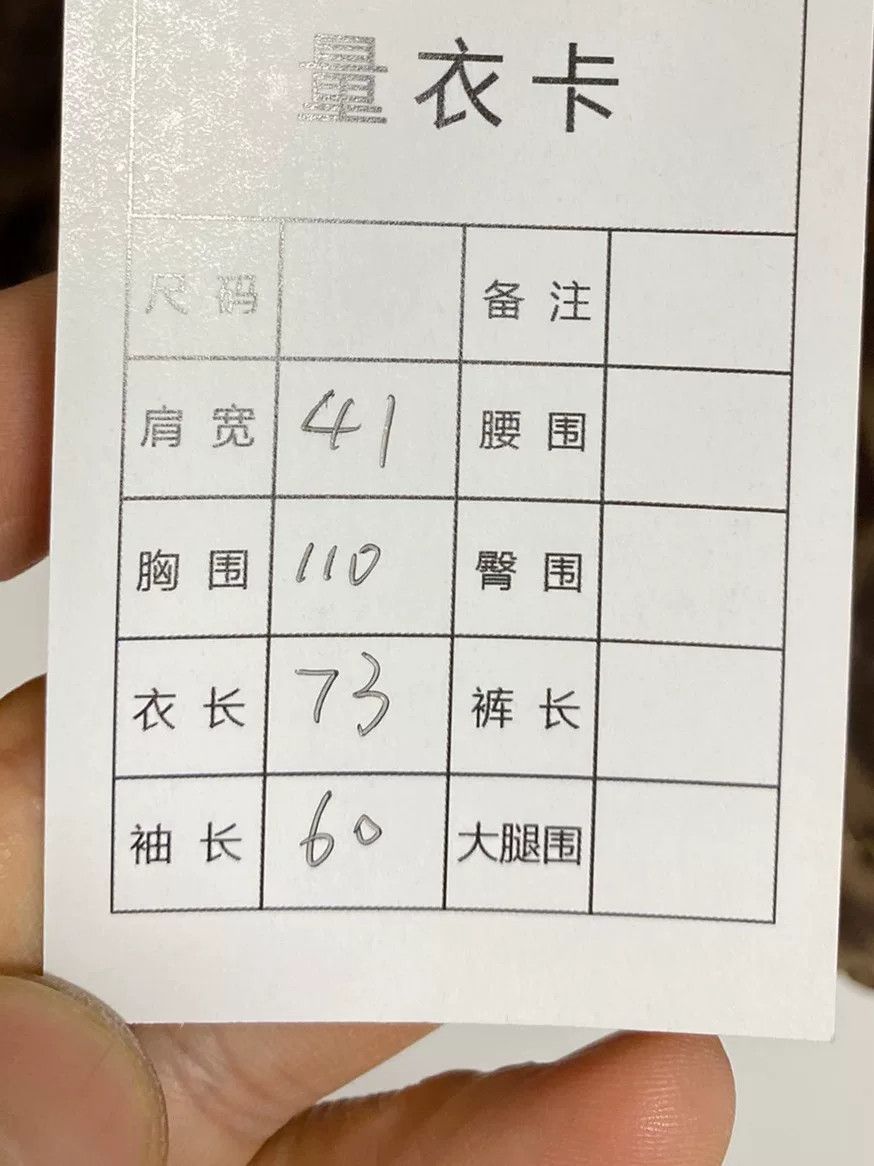 量衣卡
尺码 备注
肩宽 41 腰围
胸围 110 臀围
衣长 73 裤长
袖长 60 大腿围